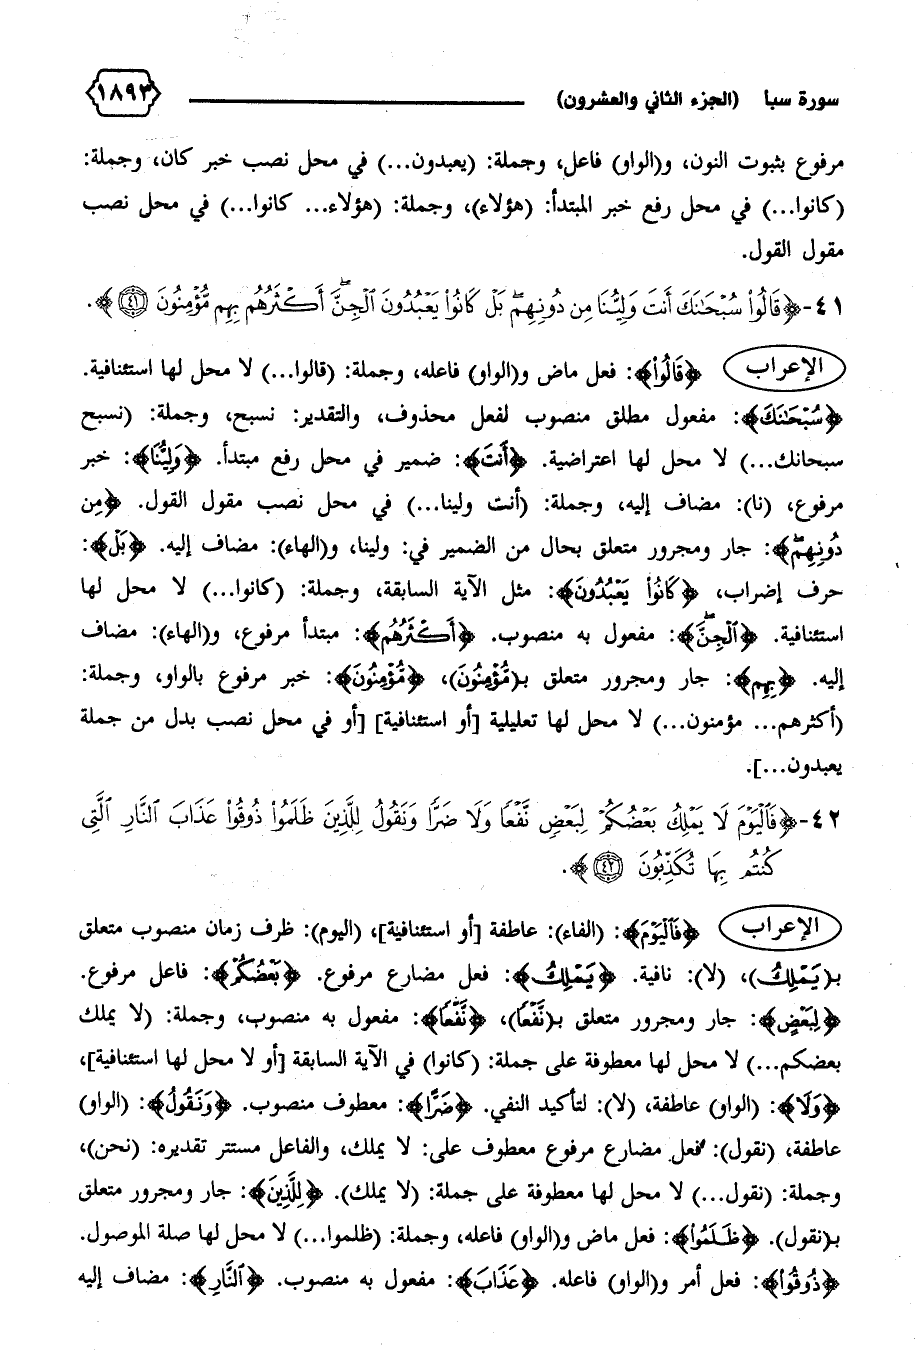 سورة سبأ (الجزء الثاني والعشرون) ١٨٩٣
مرفوع بثبوت النون، و(الواو) فاعل، وجملة: (يعبدون...) في محل نصب خبر كان، وجملة:
(كانوا...) في محل رفع خبر المبتدأ: (هؤلاء)، وجملة: (هؤلاء... كانوا...) في محل نصب
مقول القول.
٤١-﴿قَالُوا۟ سُبْحَـٰنَكَ أَنتَ وَلِيُّنَا مِن دُونِهِمۖ بَلْ كَانُوا۟ يَعْبُدُونَ ٱلْجِنَّۖ أَكْثَرُهُم بِهِم مُّؤْمِنُونَ ٤١﴾.
الإعراب ﴿قَالُوا۟﴾: فعل ماض و(الواو) فاعله، وجملة: (قالوا...) لا محل لها استئنافية.
﴿سُبْحَـٰنَكَ﴾: مفعول مطلق منصوب لفعل محذوف، والتقدير: نسبح، وجملة: (نسبح
سبحانك...) لا محل لها اعتراضية. ﴿أَنتَ﴾: ضمير في محل رفع مبتدأ. ﴿وَلِيُّنَا﴾: خبر
مرفوع، (نا): مضاف إليه، وجملة: (أنت ولينا...) في محل نصب مقول القول. ﴿مِن
دُونِهِمۖ﴾: جار ومجرور متعلق بحال من الضمير في: ولينا، و(الهاء): مضاف إليه. ﴿بَلْ﴾:
حرف إضراب، ﴿كَانُوا۟ يَعْبُدُونَ﴾: مثل الآية السابقة، وجملة: (كانوا...) لا محل لها
استئنافية. ﴿ٱلْجِنَّۖ﴾: مفعول به منصوب. ﴿أَكْثَرُهُم﴾: مبتدأ مرفوع، و(الهاء): مضاف
إليه. ﴿بِهِم﴾: جار ومجرور متعلق بـ(مُّؤْمِنُونَ)، ﴿مُّؤْمِنُونَ﴾: خبر مرفوع بالواو، وجملة:
(أكثرهم... مؤمنون...) لا محل لها تعليلية [أو استئنافية] [أو في محل نصب بدل من جملة
يعبدون...].
٤٢-﴿فَٱلْيَوْمَ لَا يَمْلِكُ بَعْضُكُمْ لِبَعْضٍ نَّفْعًا وَلَا ضَرًّا وَنَقُولُ لِلَّذِينَ ظَلَمُوا۟ ذُوقُوا۟ عَذَابَ ٱلنَّارِ ٱلَّتِى
كُنتُم بِهَا تُكَذِّبُونَ ٤٢﴾.
الإعراب ﴿فَٱلْيَوْمَ﴾: (الفاء): عاطفة [أو استئنافية]، (اليوم): ظرف زمان منصوب متعلق
بـ(يَمْلِكُ)، (لا): نافية. ﴿يَمْلِكُ﴾: فعل مضارع مرفوع. ﴿بَعْضُكُمْ﴾: فاعل مرفوع.
﴿لِبَعْضٍ﴾: جار ومجرور متعلق بـ(نَّفْعًا)، ﴿نَّفْعًا﴾: مفعول به منصوب، وجملة: (لا يملك
بعضكم...) لا محل لها معطوفة على جملة: (كانوا) في الآية السابقة [أو لا محل لها استئنافية]،
﴿وَلَا﴾: (الواو) عاطفة، (لا): لتأكيد النفي. ﴿ضَرًّا﴾: معطوف منصوب. ﴿وَنَقُولُ﴾: (الواو)
عاطفة، (نقول): فعل مضارع مرفوع معطوف على: لا يملك، والفاعل مستتر تقديره: (نحن)،
وجملة: (نقول...) لا محل لها معطوفة على جملة: (لا يملك). ﴿لِلَّذِينَ﴾: جار ومجرور متعلق
بـ(نقول). ﴿ظَلَمُوا۟﴾: فعل ماض و(الواو) فاعله، وجملة: (ظلموا...) لا محل لها صلة الموصول.
﴿ذُوقُوا۟﴾: فعل أمر و(الواو) فاعله. ﴿عَذَابَ﴾: مفعول به منصوب. ﴿ٱلنَّارِ﴾: مضاف إليه